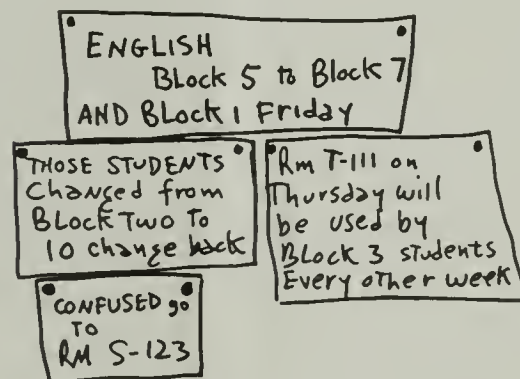 ENGLISH
Block 5 to Block 7
AND Block 1 Friday
THOSE STUDENTS
Changed from
BLOCK TWO TO
10 change back
Rm T-111 on
Thursday will
be used by
Block 3 students
Every other week
CONFUSED go
TO
RM S-123